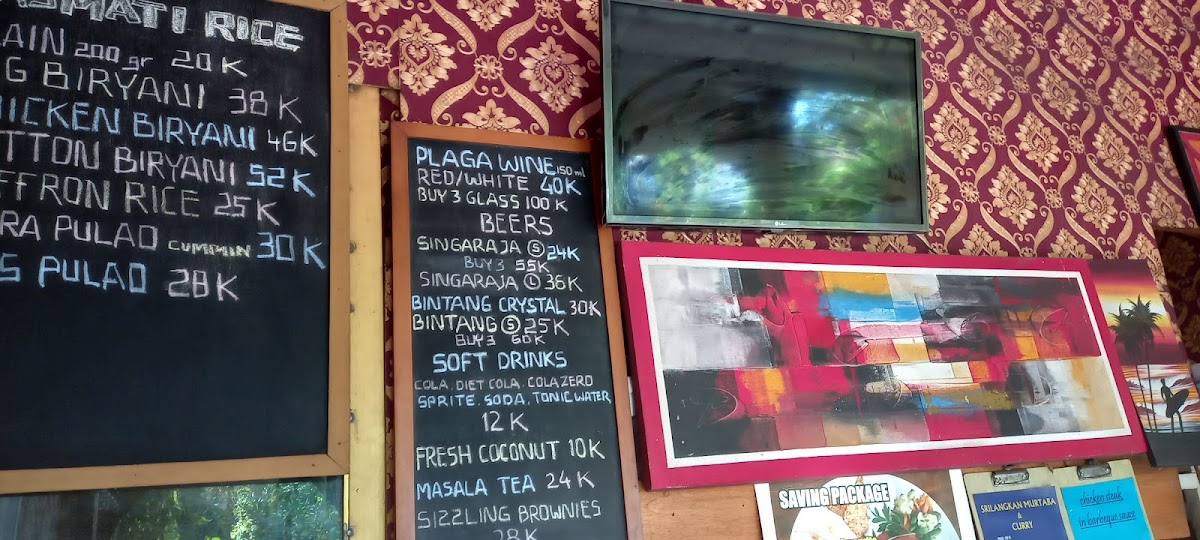 SMATI RICE
AIN 200 gr 20 K
G BIRYANI 38 K
HICKEN BIRYANI 46K
TTON BIRYANI 52 K
FFRON RICE 25 K
RA PULAO CUMMIN 30 K
S PULAO 28 K
PLAGA WINE 150 ml
RED/WHITE 40K
BUY 3 GLASS 100 K
BEERS
SINGARAJA Ⓢ 24K
BUY 3 55K
SINGARAJA Ⓛ 36K
BINTANG CRYSTAL 30K
BINTANG Ⓢ 25K
BUY 3 60K
SOFT DRINKS
COLA, DIET COLA, COLA ZERO
SPRITE, SODA, TONIC WATER
12 K
FRESH COCONUT 10K
MASALA TEA 24 K
SIZZLING BROWNIES
28K
SAVING PACKAGE
SRILANGKAN MURTABA
&
CURRY
chicken steak
in barbeque sauce